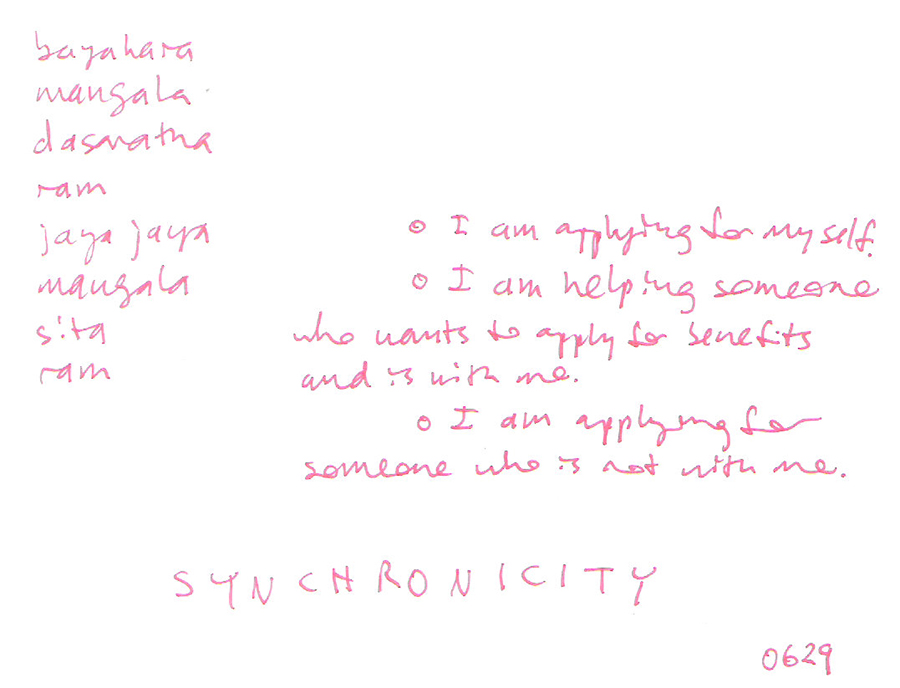 bayahara
mangala
dasaratha
ram
jaya jaya
mangala
sita
ram
o I am applying for myself.
o I am helping someone
who wants to apply for benefits
and is with me.
o I am applying for
someone who is not with me.
SYNCHRONICITY
0629